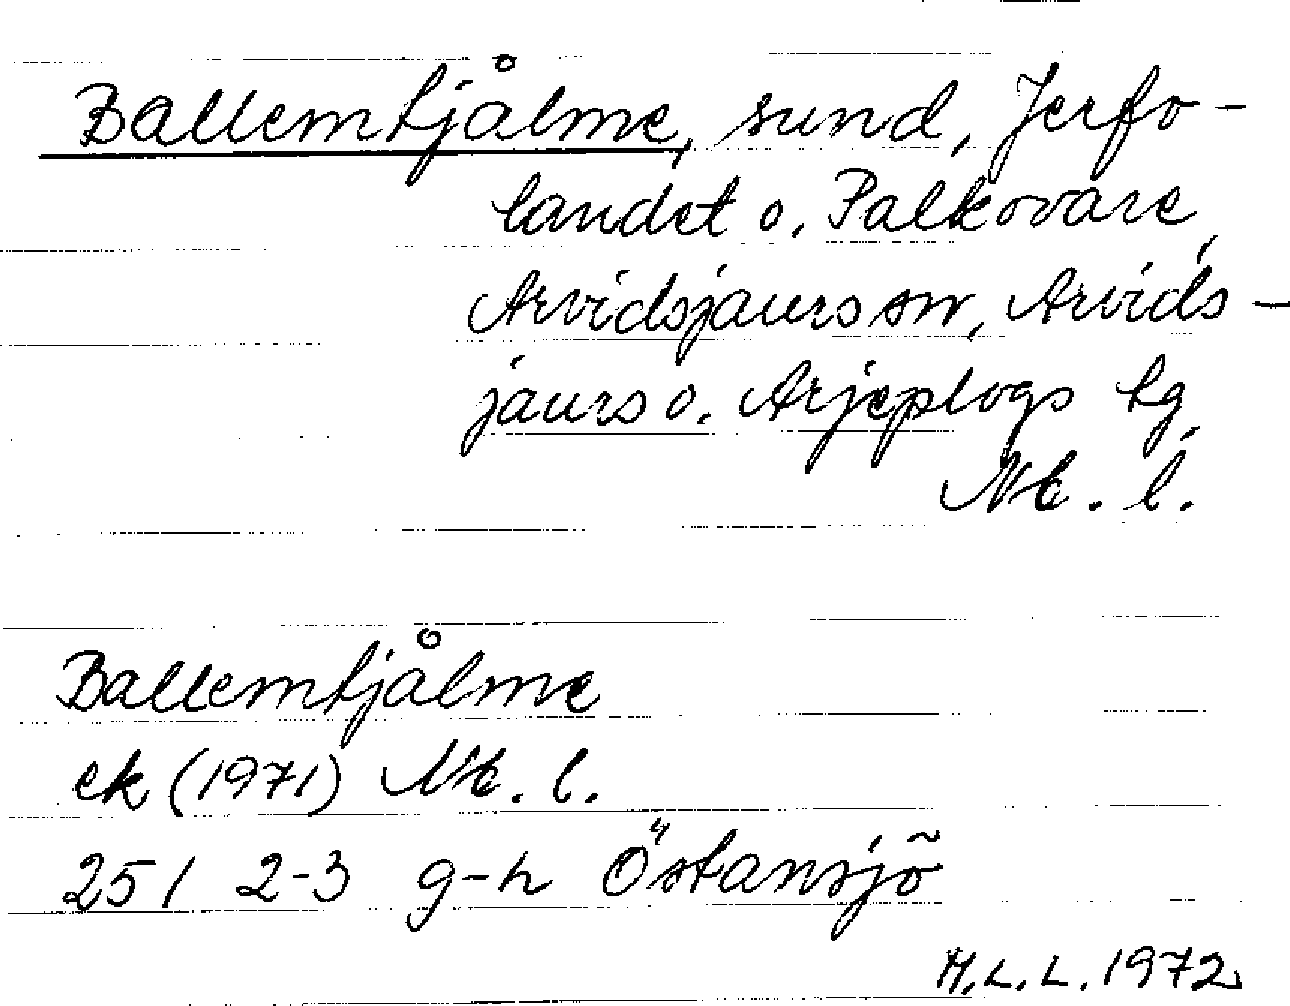 Ballemtjålme, sund, Jerfo-
landet o. Palkovare,
Arvidsjaurs sn, Arvids-
jaurs o. Arjeplogs tg,
Nb. l.
Ballemtjålme
ek (1971) Nb. l.
25 I 2-3 g-h Östansjö
M.L.L. 1972